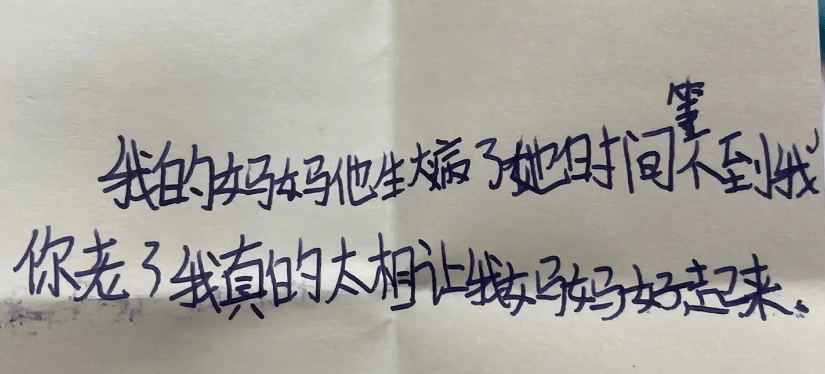 我的妈妈他生大病了她时间等不到我
你老了我真的太相让我妈妈好起来。